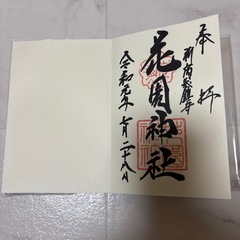 奉拝
新宿総鎮守
花園神社
令和元年七月二十八日